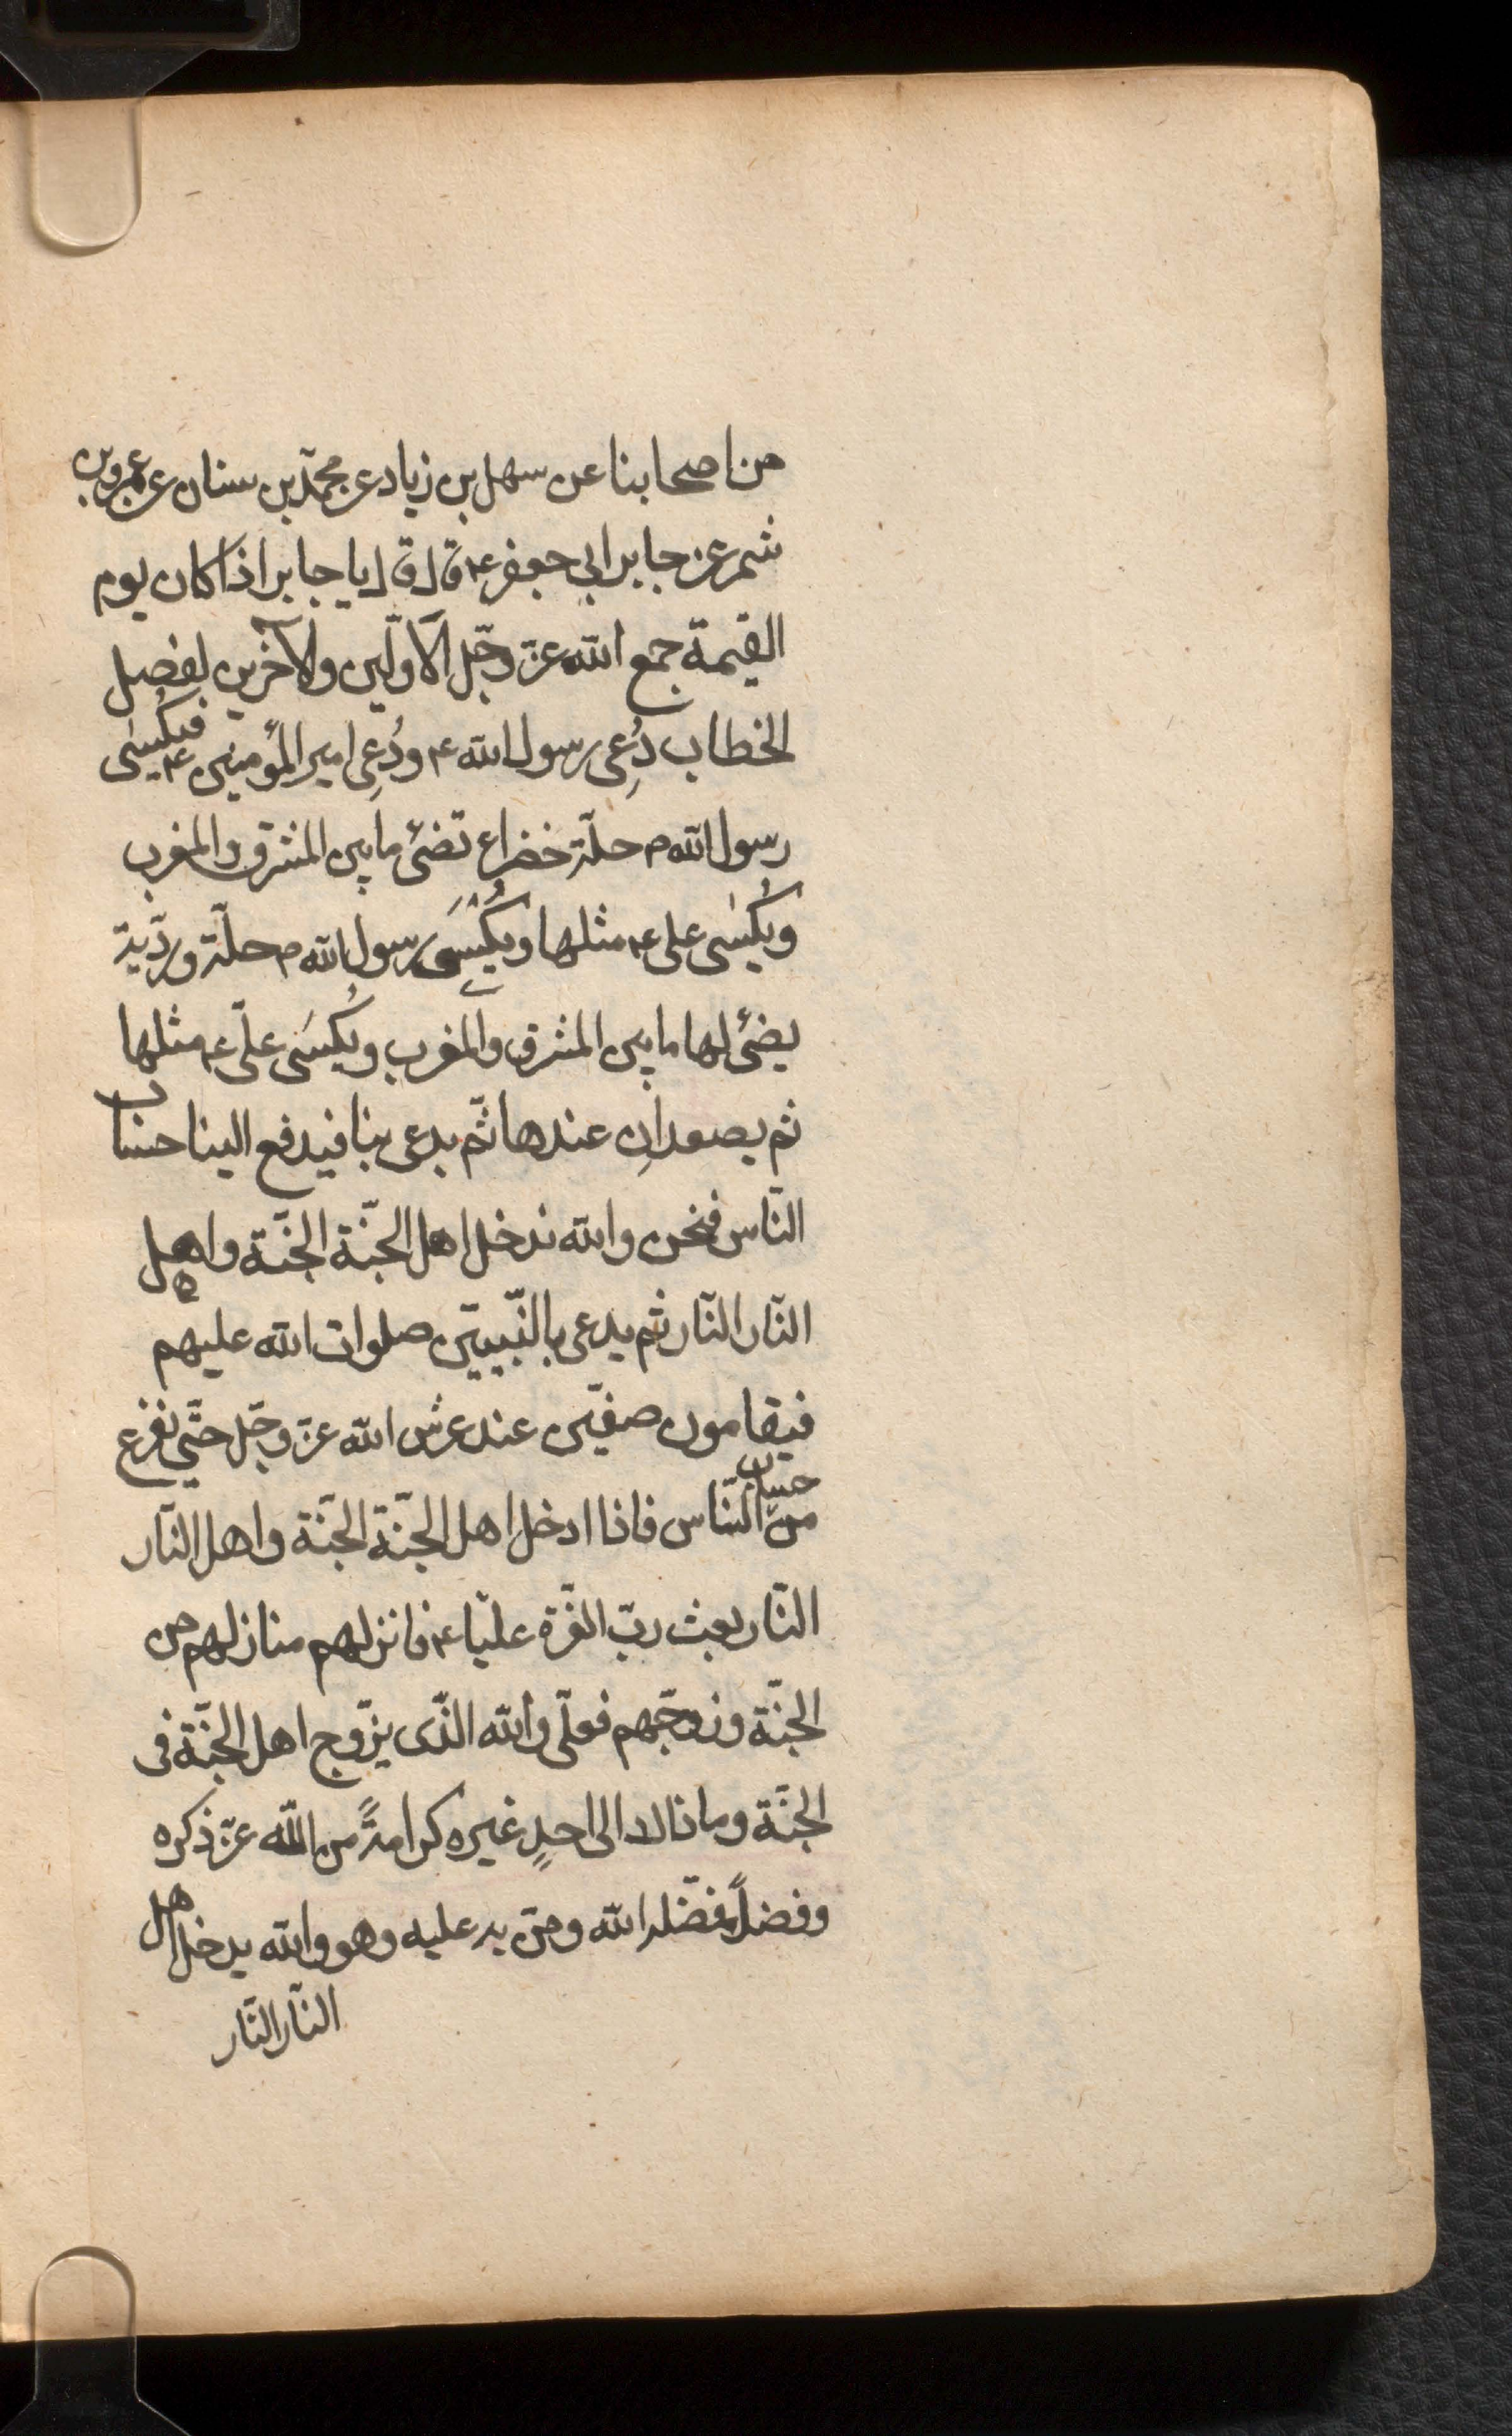 من اصحابنا عن سهل بن زياد عن محمّد بن سنان عن عمرو بن
شمر عن جابر ابي جعفر ع قال قال يا جابر اذا كان يوم
القيمة جمع الله عزّ وجّل الاوّلين والآخرين لفصل
الخطاب دُعِى رسول الله ع ودُعِى امير المؤمنين ع فيُكسىٰ
رسول الله ص حلّة خضراء تضئ ما بين المشرق والمغرب
ويُكسىٰ على ع مثلها ويُكسَى رسول الله ص حلّة ورديّة
يضئ لها ما بين المشرق والمغرب ويُكسَى علىّ ع مثلها
ثم يصعدانِ عندها ثمّ يدعى بنا فيدفع الينا حساب
النّاس فنحن والله ندخل اهل الجنّة الجنّة واهل
النّار النّار ثم يدعى بالنّبيين صلوات الله عليهم
فيقامون صفيّن عند عرش الله عزّ وجّل حتّى نفرغ
من حساب النّاس فاذا ادخل اهل الجنّة الجنّة واهل النّار
النّار بعث ربّ العزّة عليّا ع فانزلهم منازلهم من
الجنّة وزوجّهم فعلّى والله الذّى يزّوج اهل الجنّة فى
الجنّة وما ذالك الى احدٍ غيره كرامةً من الله عزّ ذكره
وفضلًا فضّله الله ومنّ به عليه وهو والله يدخل اهل
النّار النّار